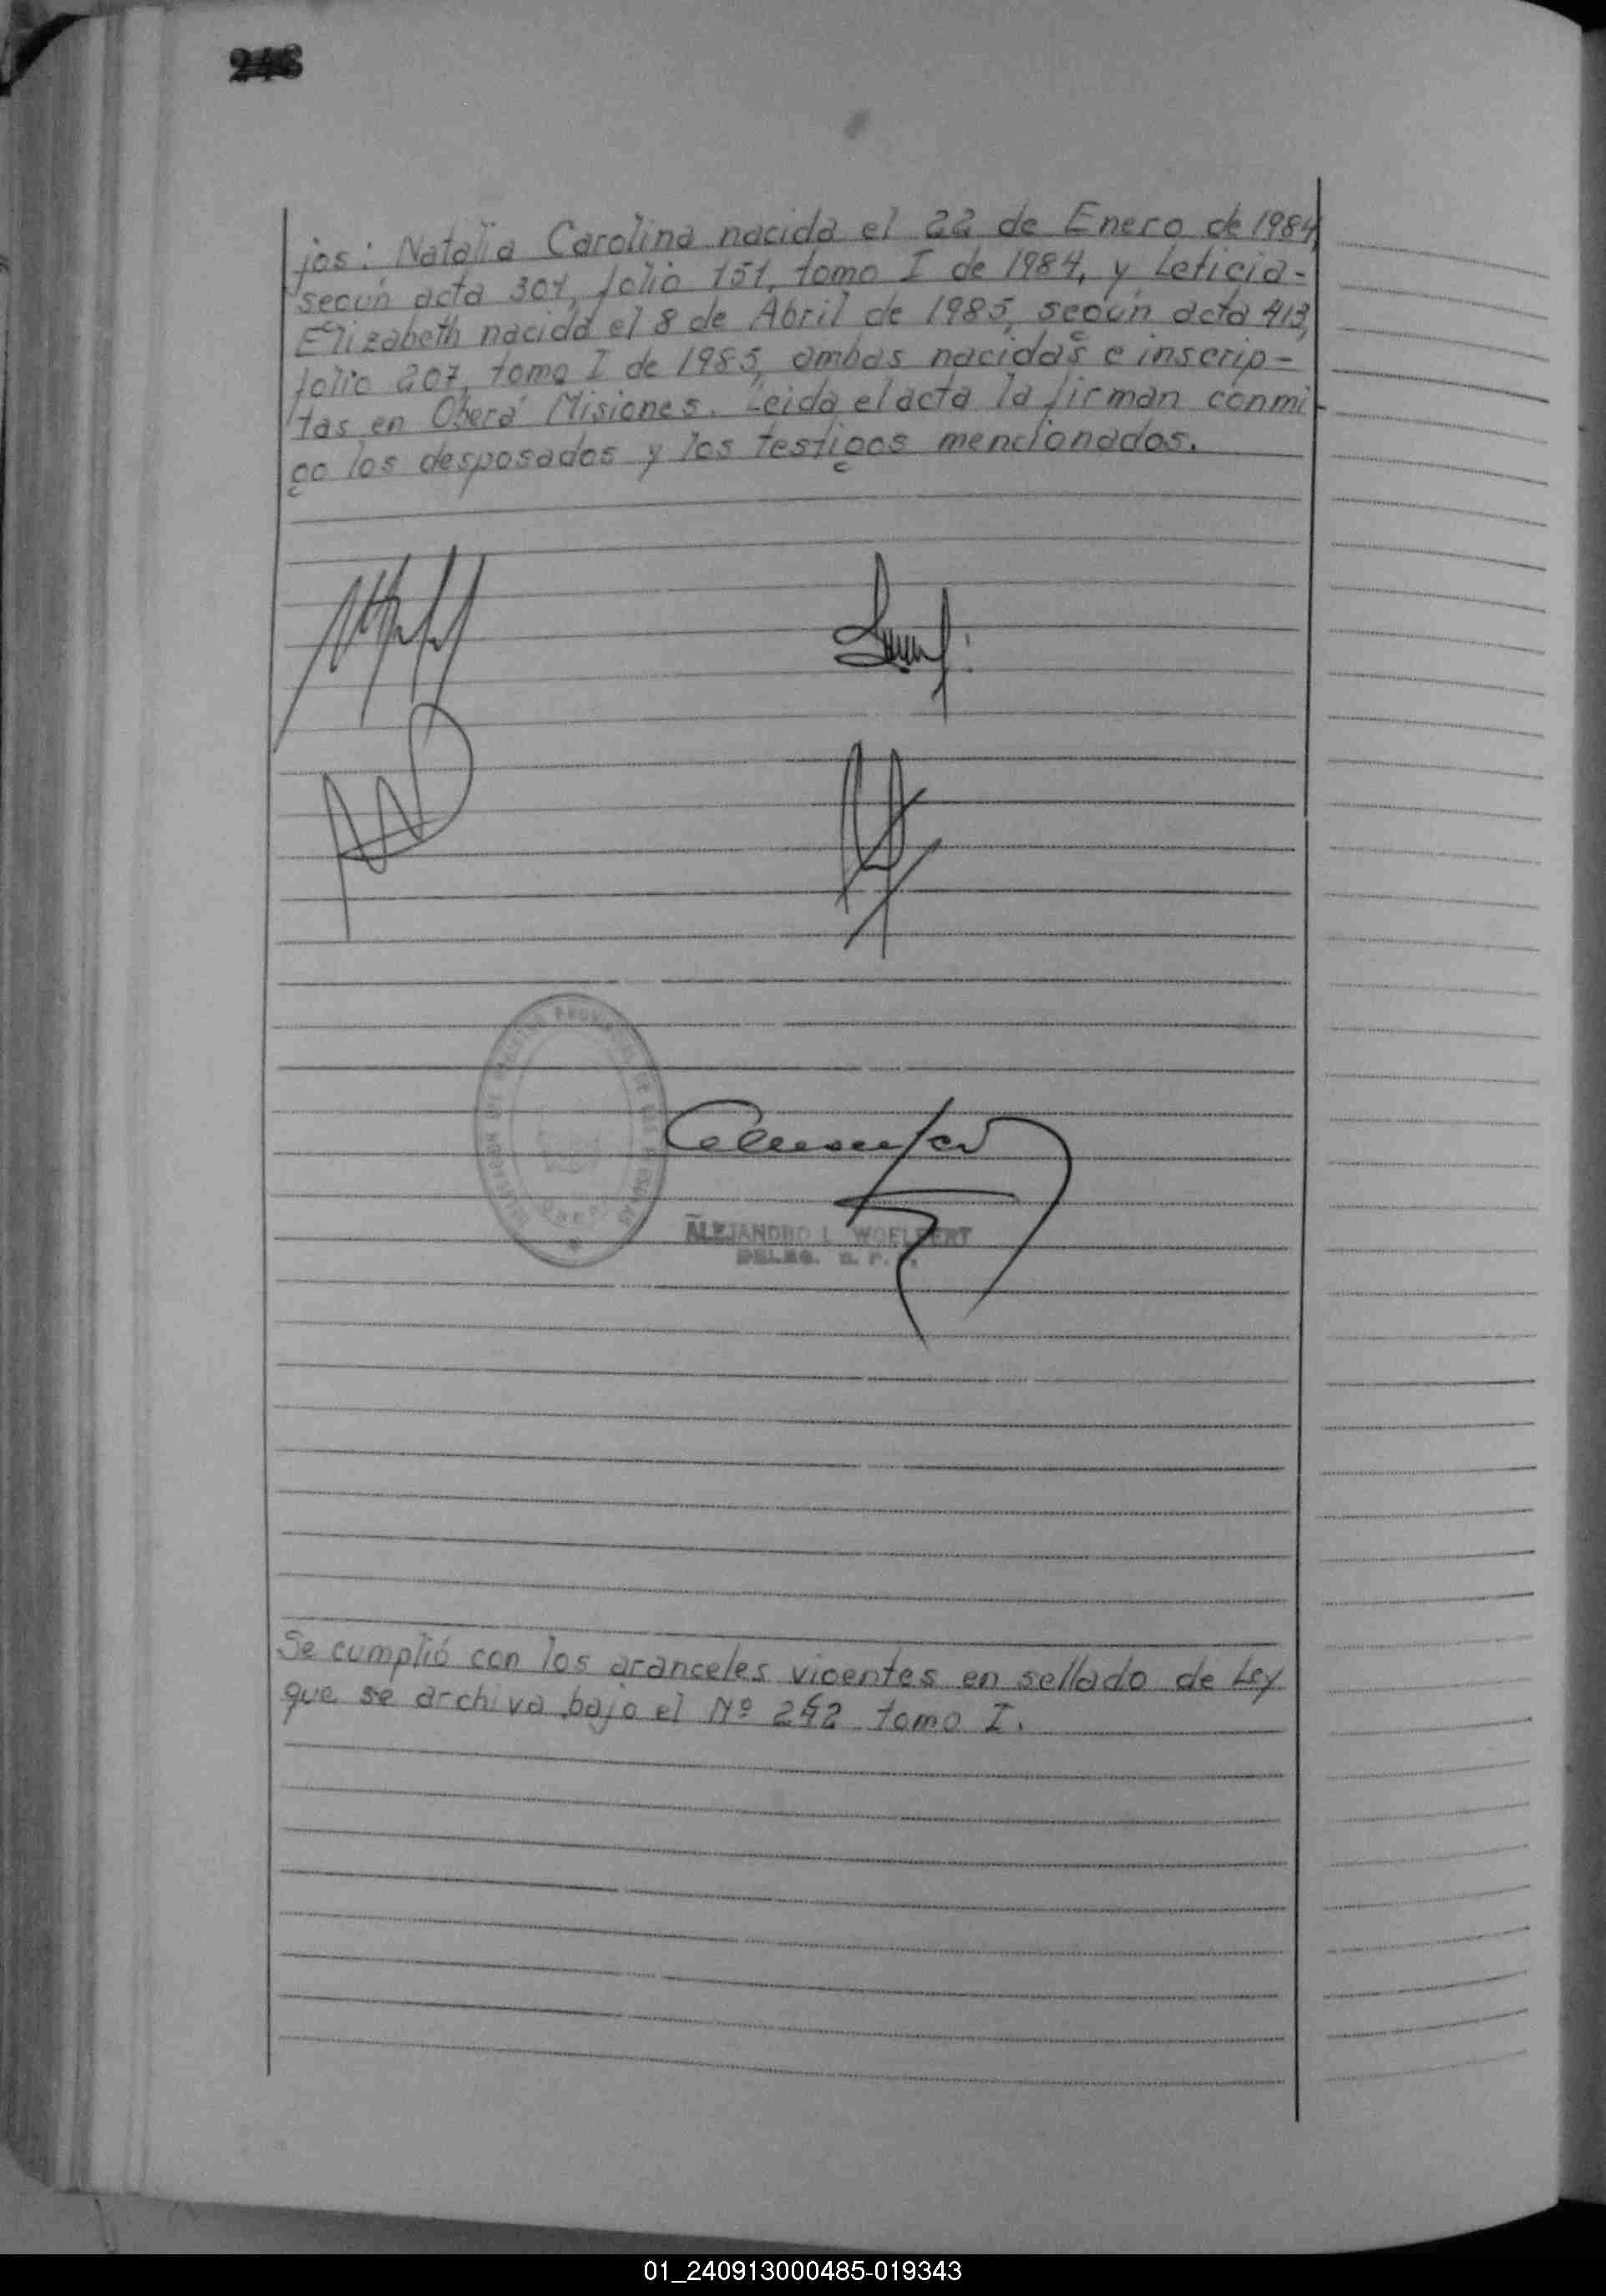 248
jos: Natalia Carolina nacida el 22 de Enero de 1984,
según acta 301, folio 151, tomo I de 1984, y Leticia-
Elizabeth nacida el 8 de Abril de 1985, según acta 413,
folio 207, tomo I de 1985, ambas nacidas e inscrip-
tas en Oberá Misiones. Leida el acta la firman conmi-
go los desposados y los testigos mencionados.
ALEJANDRO L. WOELFERT
DELEG. R. P.
Se cumplió con los aranceles vigentes en sellado de Ley
que se archiva bajo el Nº 242 tomo I.
01_240913000485-019343